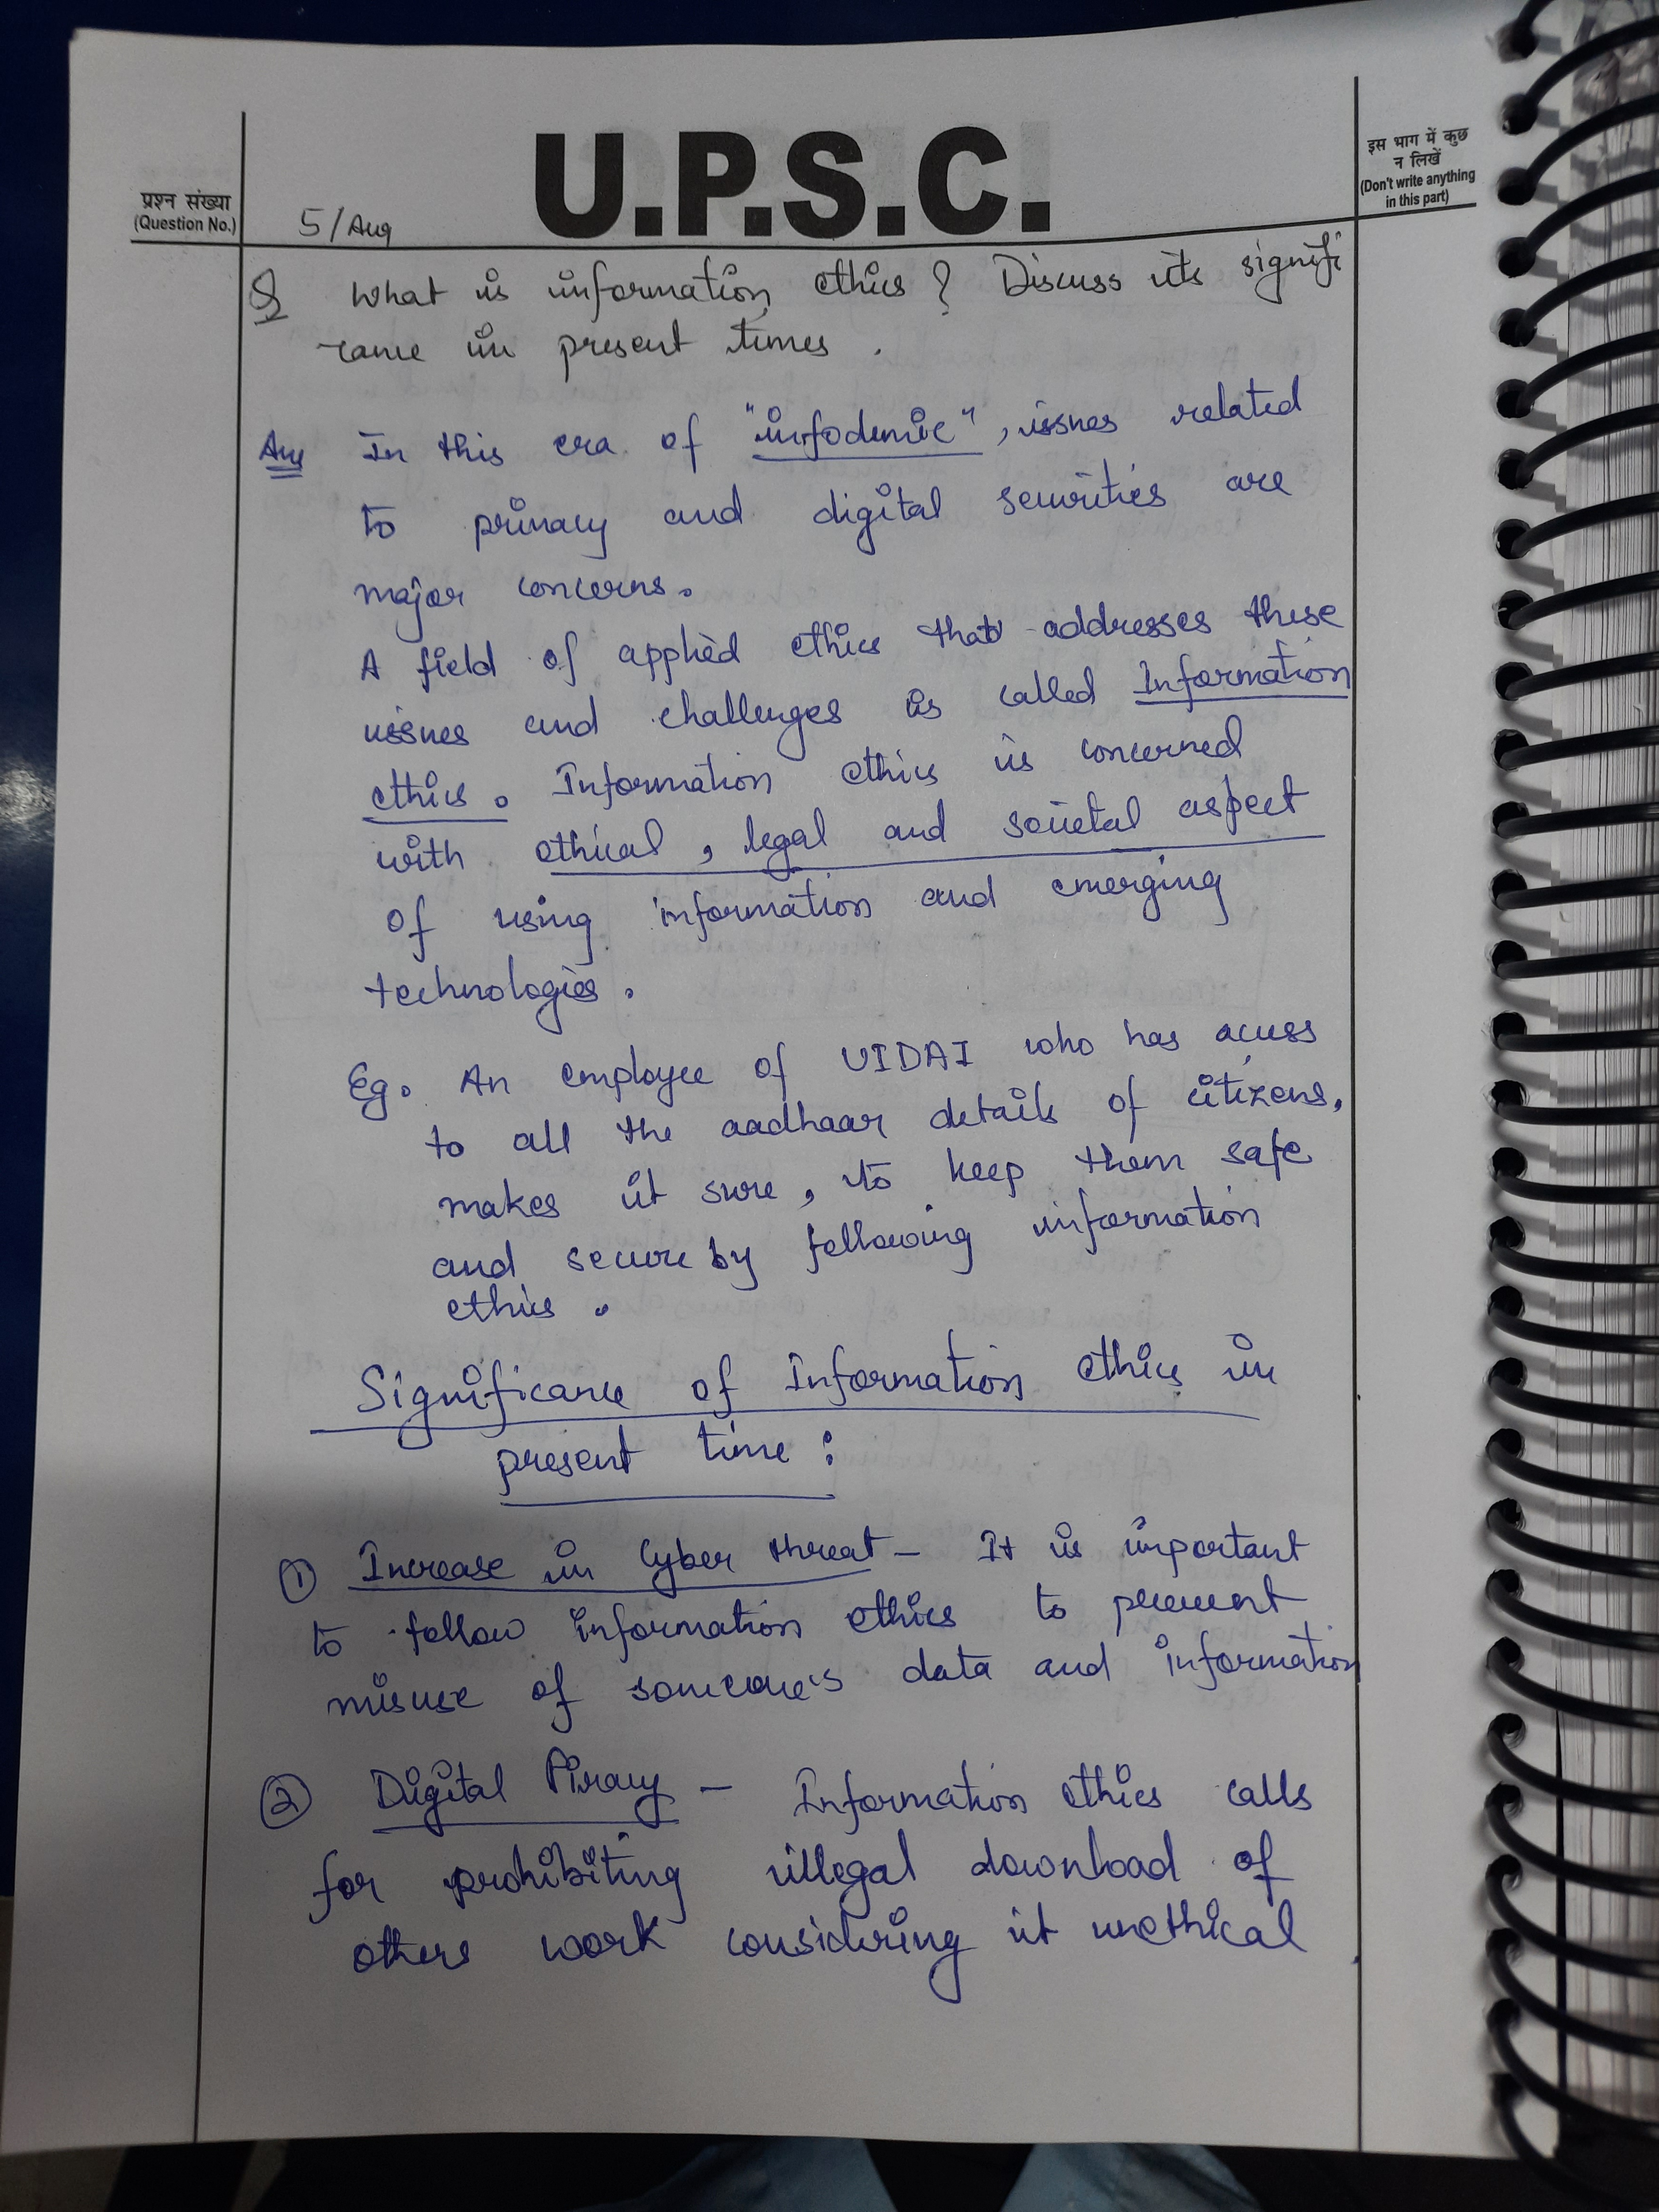 U.P.S.C.
प्रश्न संख्या
(Question No.)
5/Aug
इस भाग में कुछ
न लिखें
(Don't write anything
in this part)
Q What is information ethics? Discuss its signifi
-cance in present times.
Ans In this era of "infodemic", issues related
to privacy and digital securities are
major concerns.
A field of applied ethics that addresses these
issues and challenges is called Information
ethics. Information ethics is concerned
with ethical, legal and societal aspect
of using information and emerging
technologies.
Eg. An employee of UIDAI who has access
to all the aadhaar details of citizens,
makes it sure, to keep them safe
and secure by following information
ethics.
Significance of Information ethics in
present time:
① Increase in Cyber threat – It is important
to follow information ethics to prevent
misuse of someone's data and information
② Digital Piracy – Information ethics calls
for prohibiting illegal download of
others work considering it unethical.